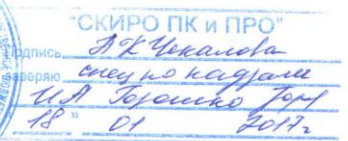 "СКИРО ПК и ПРО"
Подпись А К Чекалова
заверяю спец по кадрам
И А Горошко Гор
18 " 01 2017г